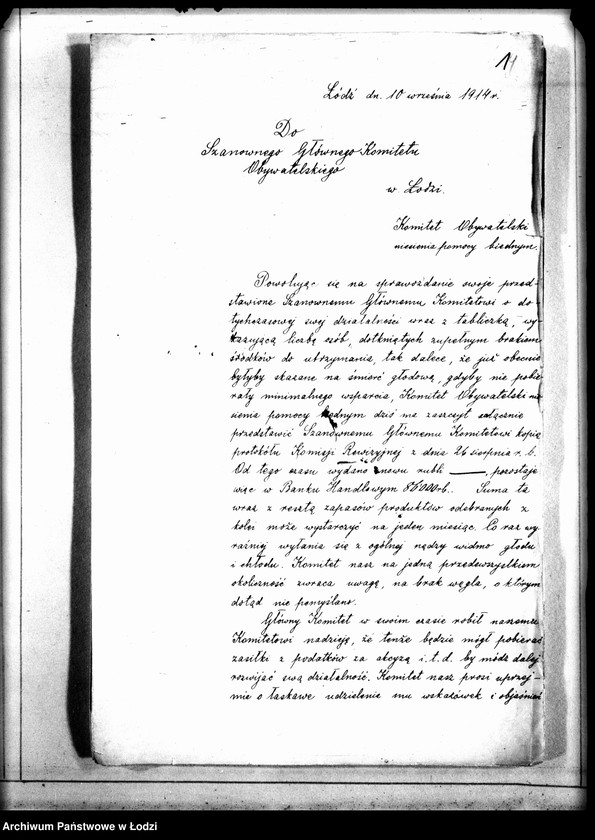 11
Łódź dn. 10 września 1914 r.
Do
Szanownego Głównego Komitetu
Obywatelskiego
w Łodzi.
Komitet Obywatelski
niesienia pomocy biednym.
Powołując się na sprawozdanie swoje przed-
stawione Szanownemu Głównemu Komitetowi o do
tychczasowej swej działalności wraz z tabliczką, wy
kazującą liczbę osób, dotkniętych zupełnym brakiem
środków do utrzymania, tak dalece, że już obecnie
byłyby skazane na śmierć głodową, gdyby nie pobie
rały minimalnego wsparcia, Komitet Obywatelski nie
sienia pomocy biednym dziś ma zaszczyt załącznie
przedstawić Szanownemu Głównemu Komitetowi kopię
protokółu Komisji Rewizyjnej z dnia 26 sierpnia r. b.
Od tego czasu wydano znowu rubli ———, pozostaje
więc w Banku Handlowym 86000 rb.. Suma ta
wraz z resztą zapasów produktów odebranych z
kolei może wystarczyć na jeden miesiąc. Co raz wy
raźniej wyłania się z ogólnej nędzy widmo głodu
i chłodu. Komitet nasz na jedną przedewszystkiem
okoliczność zwraca uwagę, na brak węgla, o którym
dotąd nie pomyślano.
Główny Komitet w swoim czasie robił naszemu
Komitetowi nadzieję, że tenże będzie mógł pobierać
zasiłki z podatków za akcyzę i. t. d. by módz dalej
rozwijać swą działalność. Komitet nasz prosi uprzej-
mie o łaskawe udzielenie mu wskazówek i objaśnień
Archiwum Państwowe w Łodzi